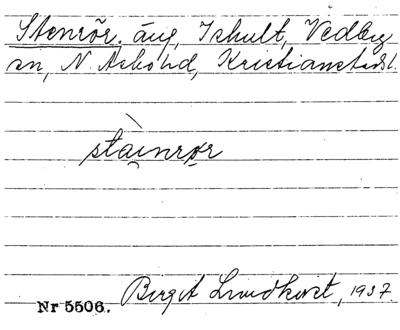 Stenrör. äng, Ishult, Vedby
sn, N. Åsbo hd, Kristianstads l.
stai̯nrør
Birgit Lundkvist, 1937
Nr 5506.